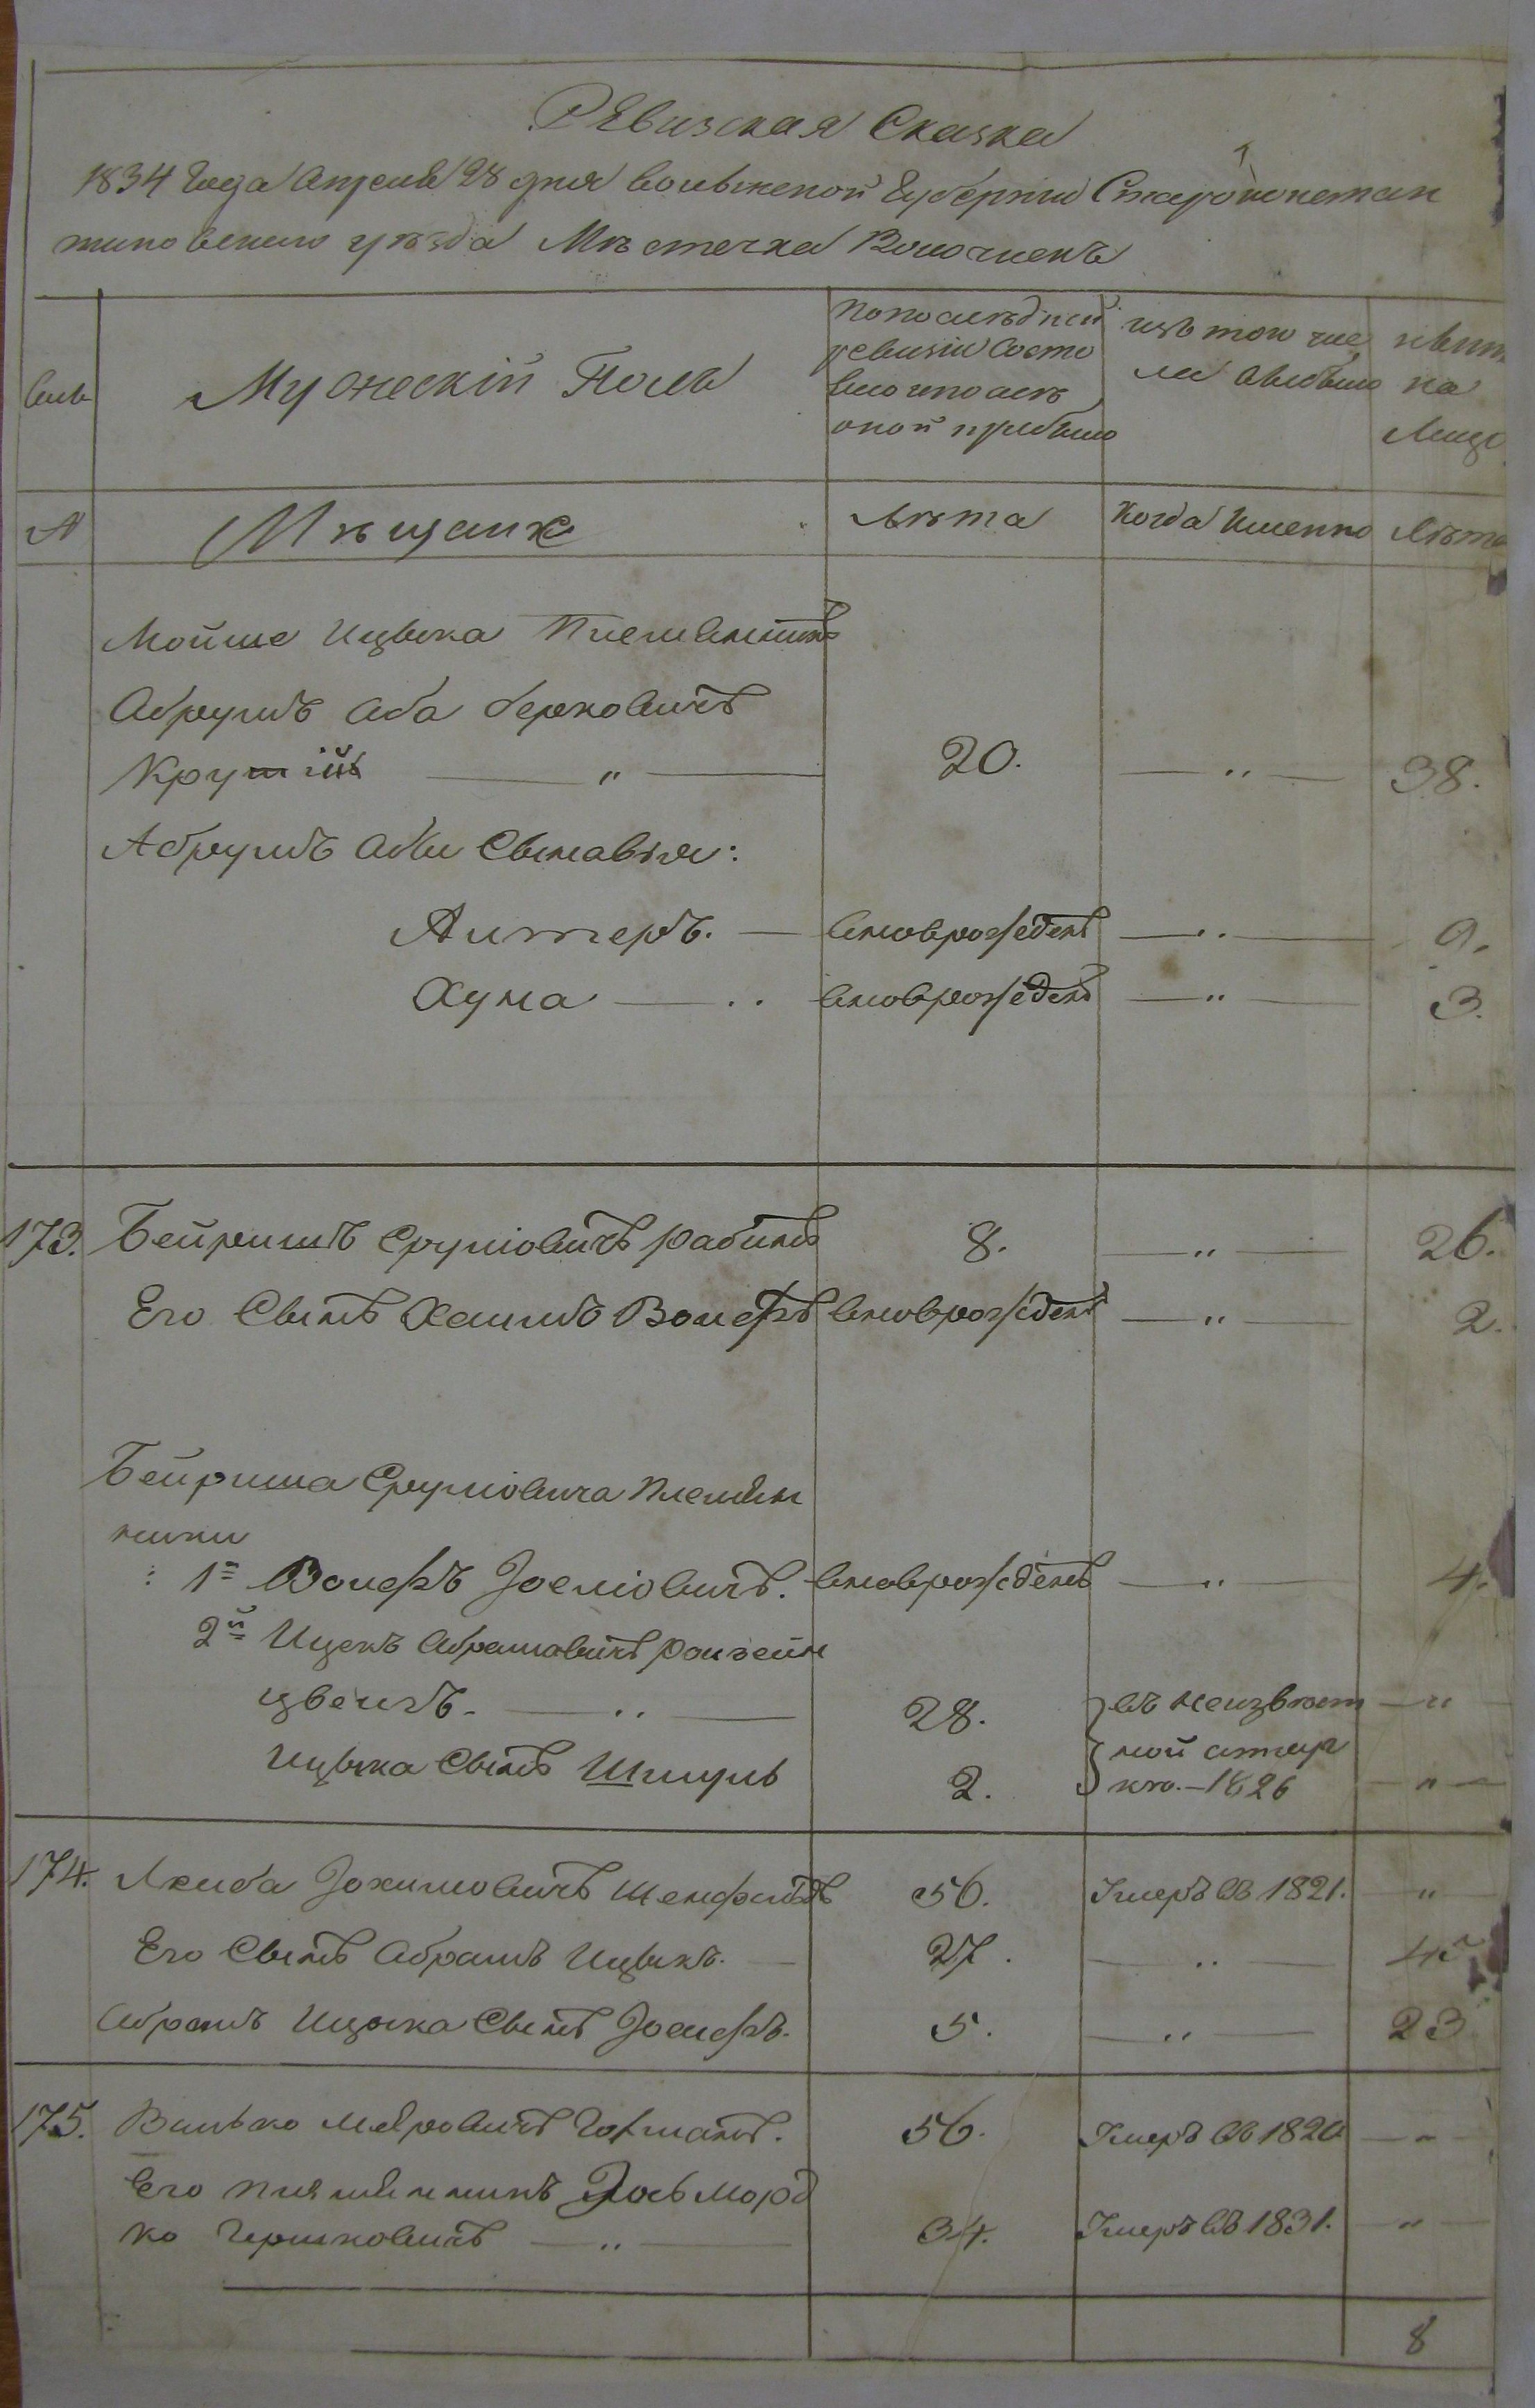 Ревизская Сказка
1834 года Апреля 28 дня Волынской Губернии Староконстан
тиновского уезда Мѣстечка Волочискъ
Мужескій Полъ
По последней
ревизіи Состо
яло и после
оной прибыло
изъ того чис
ла выбыло
на
Лицо
№
Мѣщане
Лѣта
Когда Именно
Лѣта
Мойше Ицька Племянникъ
Абрумъ Аба Берковичъ
Крутій — " —
20.
— " —
38.
Абрумъ Абы Сыновья:
Алтеръ. —
вновьрожденъ
— " —
9.
Хуна — "
вновьрожденъ
— " —
3.
173.
Бейришъ Сруліовичъ Рабинъ
8.
— " —
26.
Его Сынъ Хаимъ Вольфъ
вновьрожденъ
— " —
2.
Бейриша Сруліовича Племян
ники
1й Вольфъ Іосліовичъ.
вновьрожденъ
— " —
4.
2й Ицекъ Абрамовичъ
цвейгъ. — " —
28.
въ неизвест
— "
Ицька Сынъ Шмуль
2.
ной отлуч
ко. — 1826
— " —
174.
Акиба Шенфельдъ
56.
Умеръ въ 1821.
"
Его Сынъ Абрамъ Ицькъ. —
27.
— " —
45
Абрамъ Ицька Сынъ Іосифъ.
5.
— " —
23
175.
Вилько Меровичъ Гофманъ.
56.
Умеръ въ 1820
— " —
Его племянникъ Йось Морд
ко Гершковичъ — " —
34.
Умеръ въ 1831.
— " —
8